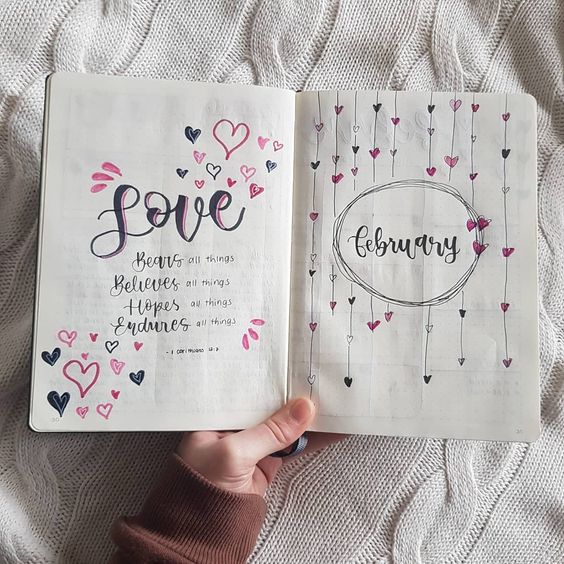 Love
Bears all things
Believes all things
Hopes all things
Endures all things
February